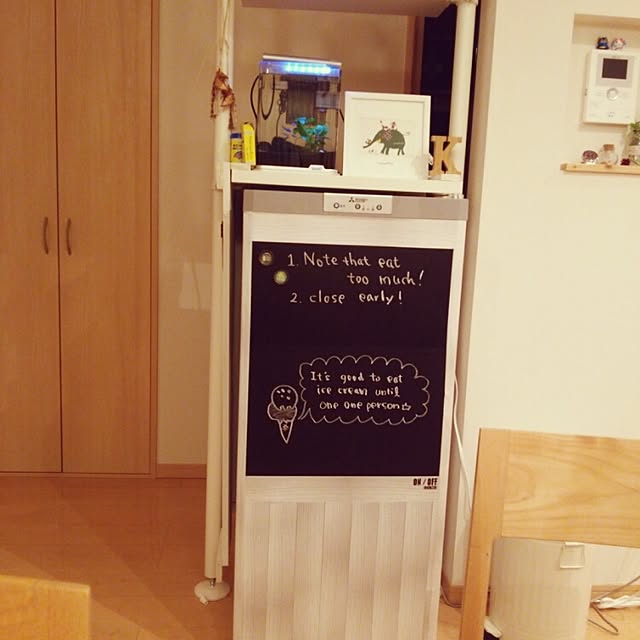 K
1. Note that eat
too much!
2. close early!
It's good to eat
ice cream until
one one person
ON / OFF